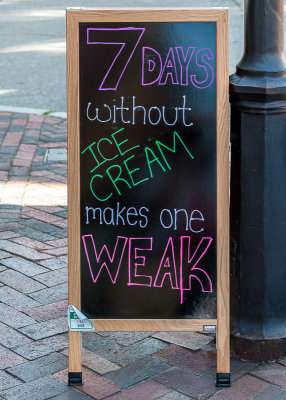 7 DAYS
without
ICE
CREAM
makes one
WEAK